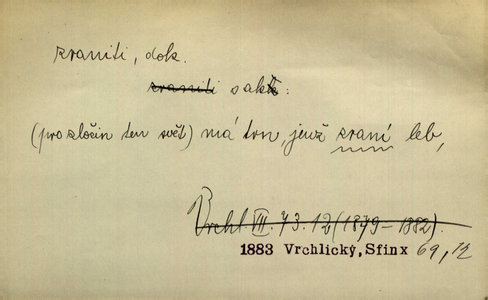 zraniti, dok.
zraniti sak:
(pro zločin ten svět) má trn, jenž zraní leb,
Vrchl III. 73. 12 (1879 – 1882)
1883 Vrchlický, Sfinx 69, 12